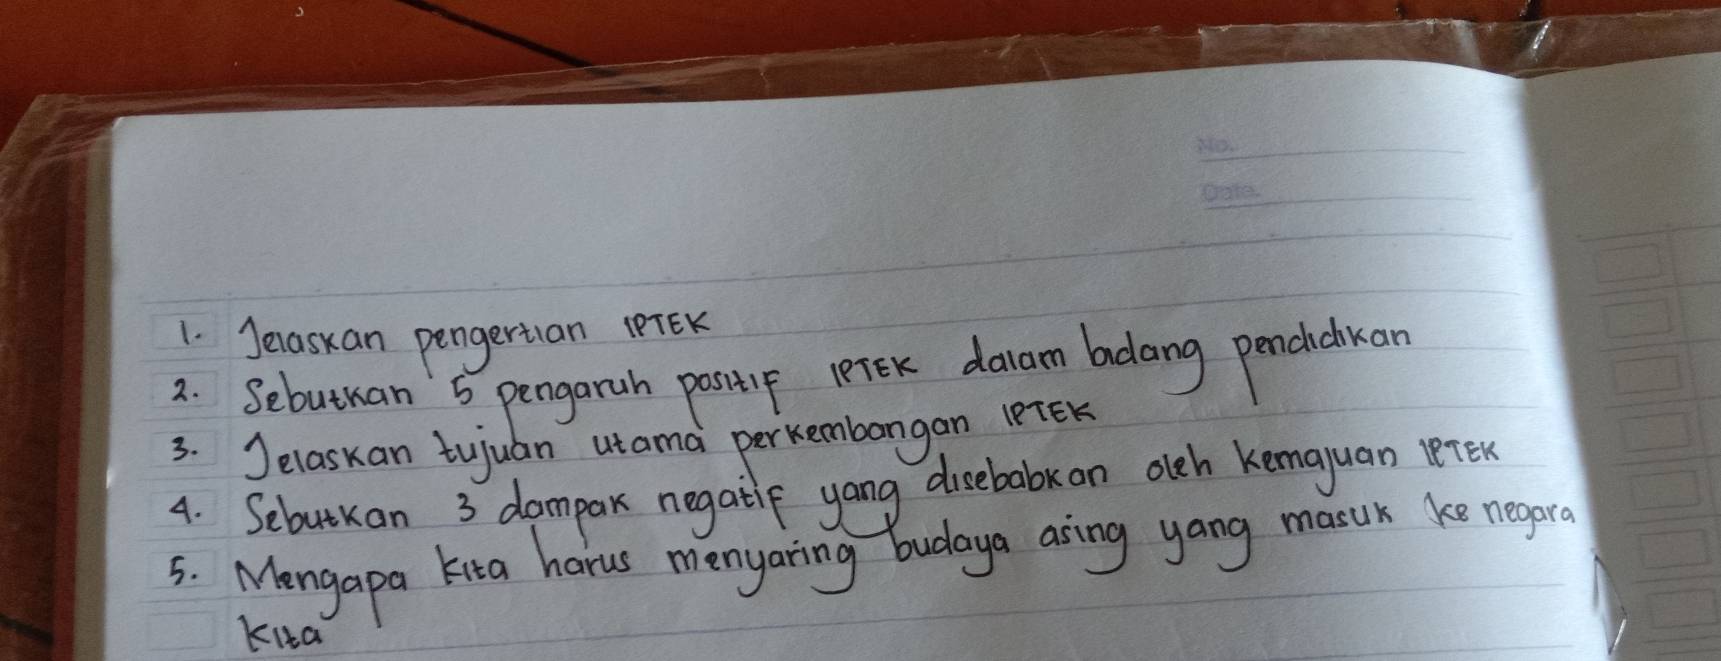 No.
Date.
1. Jelaskan pengertian IPTEK
2. Sebutkan 5 pengaruh positif IPTEK dalam bidang pendidikan
3. Jelaskan tujuan utama perkembangan IPTEK
4. Sebutkan 3 dampak negatif yang disebabkan oleh kemajuan IPTEK
5. Mengapa kita harus menyaring budaya asing yang masuk ke negara
kita